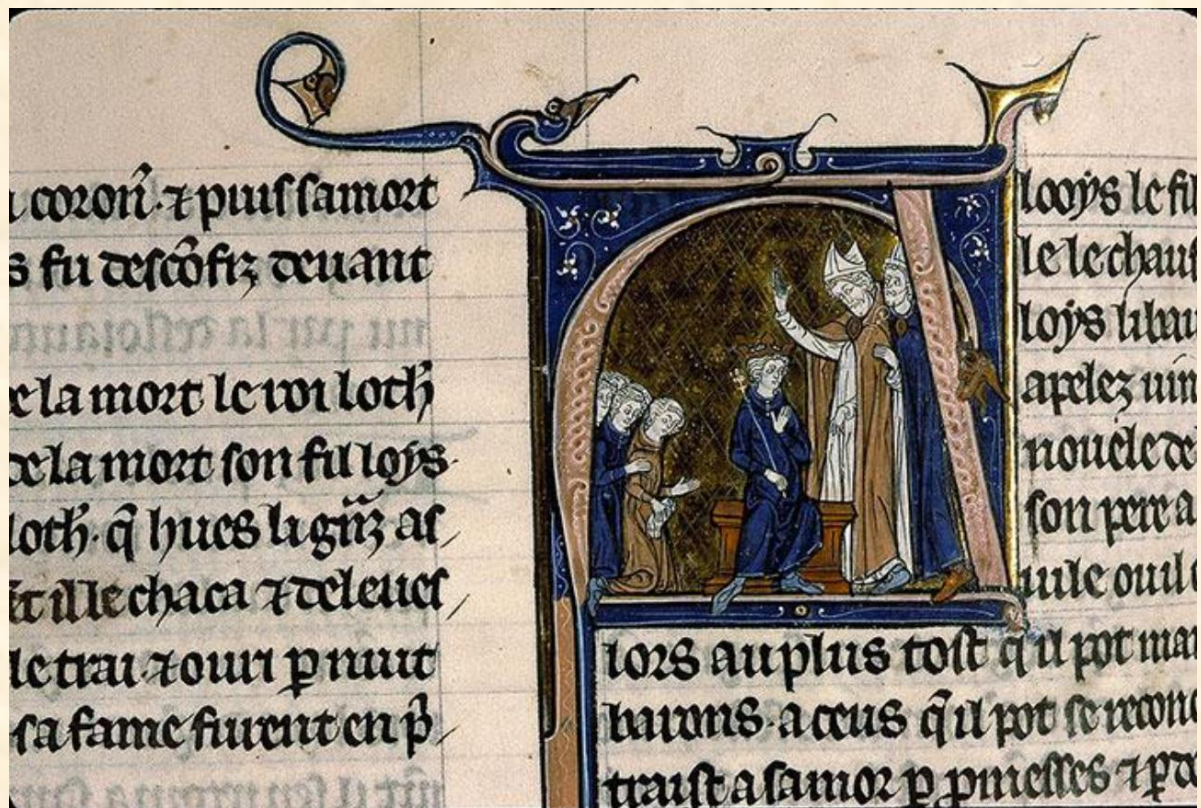 coron̄. ⁊ puis sa mort
s fu desc̄ofiz deuant
de la mort le roi loth̄
de la mort son fil loys.
loth̄. q̄ hues li gn̄z as
ille chaca ⁊ deleues
le trai. ⁊ ouri ꝑ nuit
sa fame furent en p̄
looys le fil
le le chau
loys li bau
apelez uin
nouele de
son pere a
uile ou il
lors au plus tost q̄ il pot ma
barons. a ceus q̄ il pot se recon
traist a samor ꝑ ꝓmesses ⁊ ꝑ d